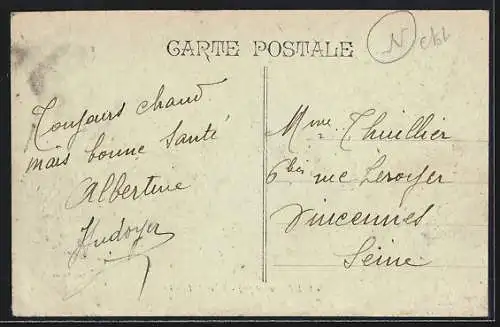 CARTE POSTALE
N
Toujours chaud
mais bonne santé
Albertine
Hudoyer
Mme Thuillier
6 bis rue Leroyer
Vincennes
Seine